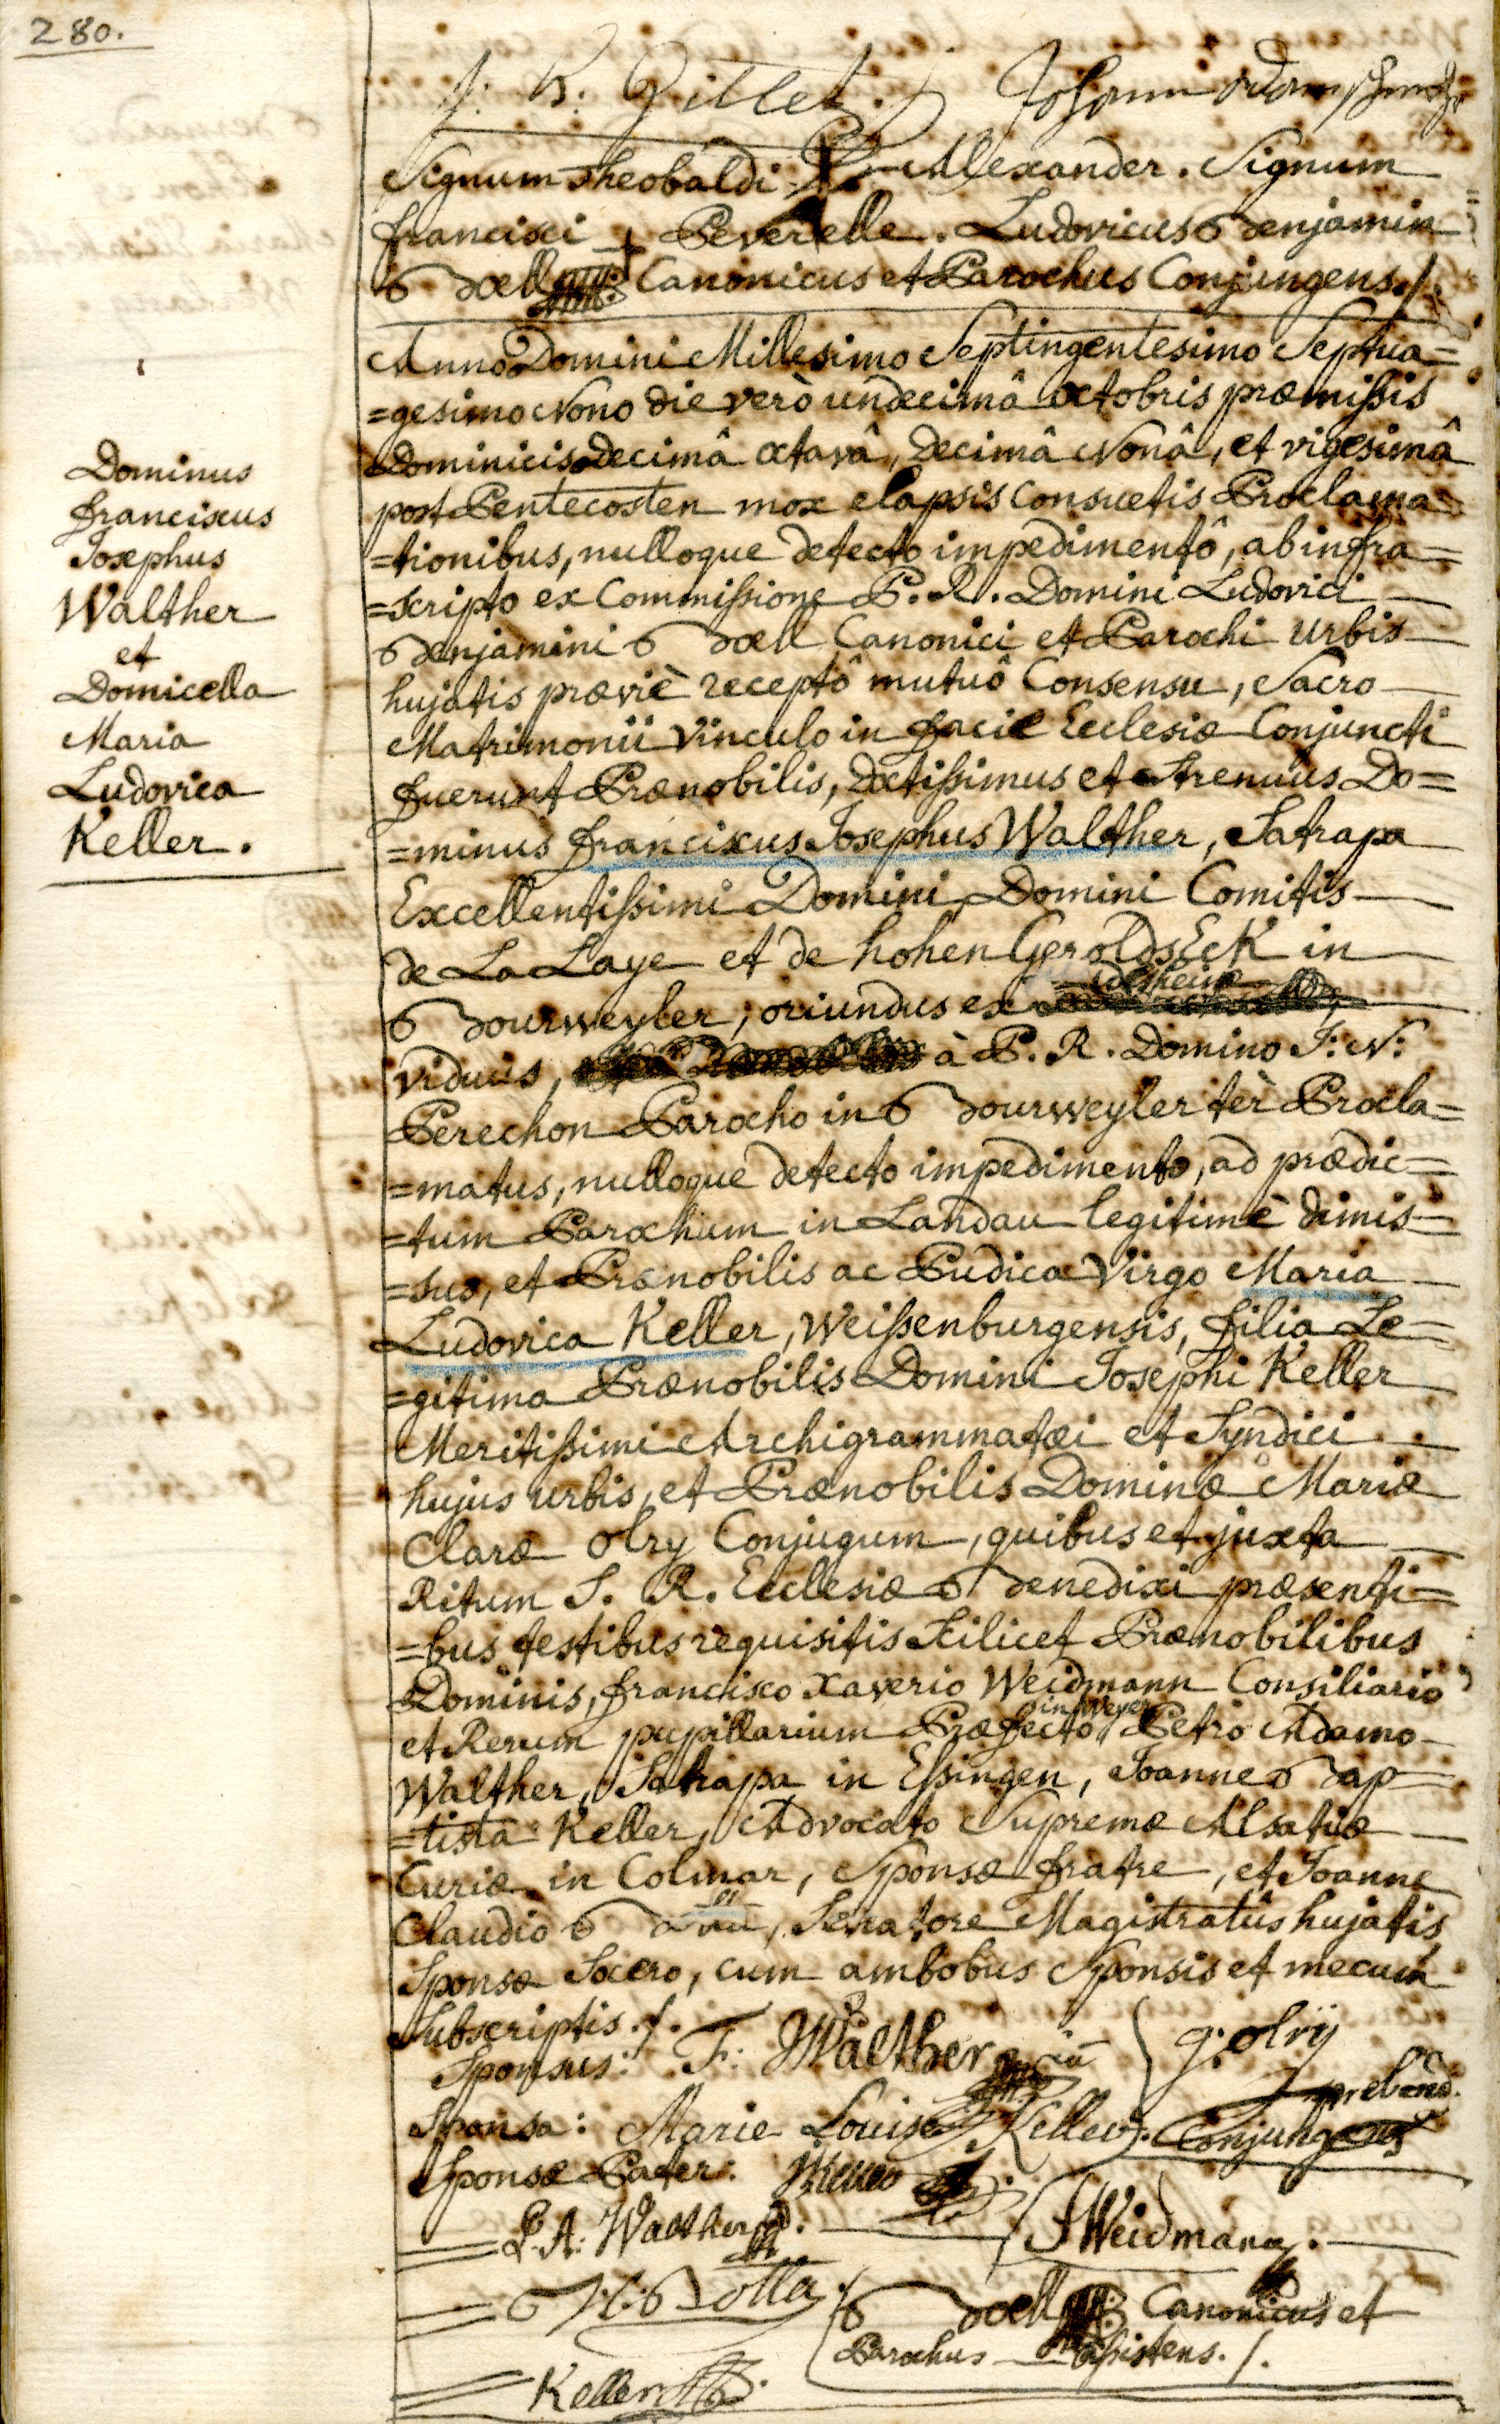 280.
J: B: Gillet. Johann Adam
Signum Theobaldi + Alexander. Signum
Francisci + Peverelle. Ludovicus Benjamin
Boell Canonicus et Parochus Conjungens./.
Anno Domini Millesimo Septingentesimo Septua=
=gesimo Nono die verò undecimâ octobris præmissis
Dominicis Decimâ octavâ, Decimâ Nonâ, et vigesimâ
post Pentecosten mox elapsis consuetis Proclama
=tionibus, nulloque detecto impedimentô, ab infra=
=scripto ex Commissione P. R. Domini Ludovici
Benjamini Boell Canonici et Parochi Urbis
hujatis præviè receptô mutuô Consensu, Sacro
Matrimonii Vinculo in facie Ecclesiæ Conjuncti
fuerunt Prænobilis, Doctissimus et Strenuus Do=
=minus Franciscus Josephus Walther, Satrapa
Excellentissimi Domini Domini Comitis
de La Laye et de hohen GeroldsEcK in
Bourweyler, oriundus ex
viduus, à P. R. Domino J: N:
Perechon Parocho in Bourweyler tèr Procla=
=matus, nulloque detecto impedimento, ad prædic=
=tum Parochum in Landau legitimè dimis
=sus, et Prænobilis ac Pudica Virgo Maria
Ludovica Keller, Weissenburgensis, filia Le=
=gitima Prænobilis Domini Josephi Keller
Meritissimi Archigrammatæi et Syndici
hujus urbis, et Prænobilis Dominæ Mariæ
Claræ Olry Conjugum, quibus et juxta
Ritum S. R. Ecclesiæ Benedixi præsenti=
=bus testibus requisitis Scilicet Prænobilibus
Dominis, Francisco Xaverio Weidmann Consiliario
et Rerum pupillarium Præfecto in Weyer Petro Adamo
Walther, Satrapa in Essingen, Joanne Bap
=tista Keller, Advocato Supremæ Alsatiæ
Curiæ in Colmar, Sponsæ fratre, et Joanne
Claudio, Senatore Magistratûs hujatis
Sponsæ Socero, cum ambobus Sponsis et mecum
Subscriptis./.
Sponsus: F: Walther
g: olrÿ
prebend.
Conjungens
Sponsa: Marie Louise Keller.
Sponsæ Pater: Keller
P. A. Walther.
Weidmann.
Boell Canonicus et
Parochus Assistens./.
Keller
Dominus
Franciscus
Josephus
Walther
et
Domicella
Maria
Ludovica
Keller.